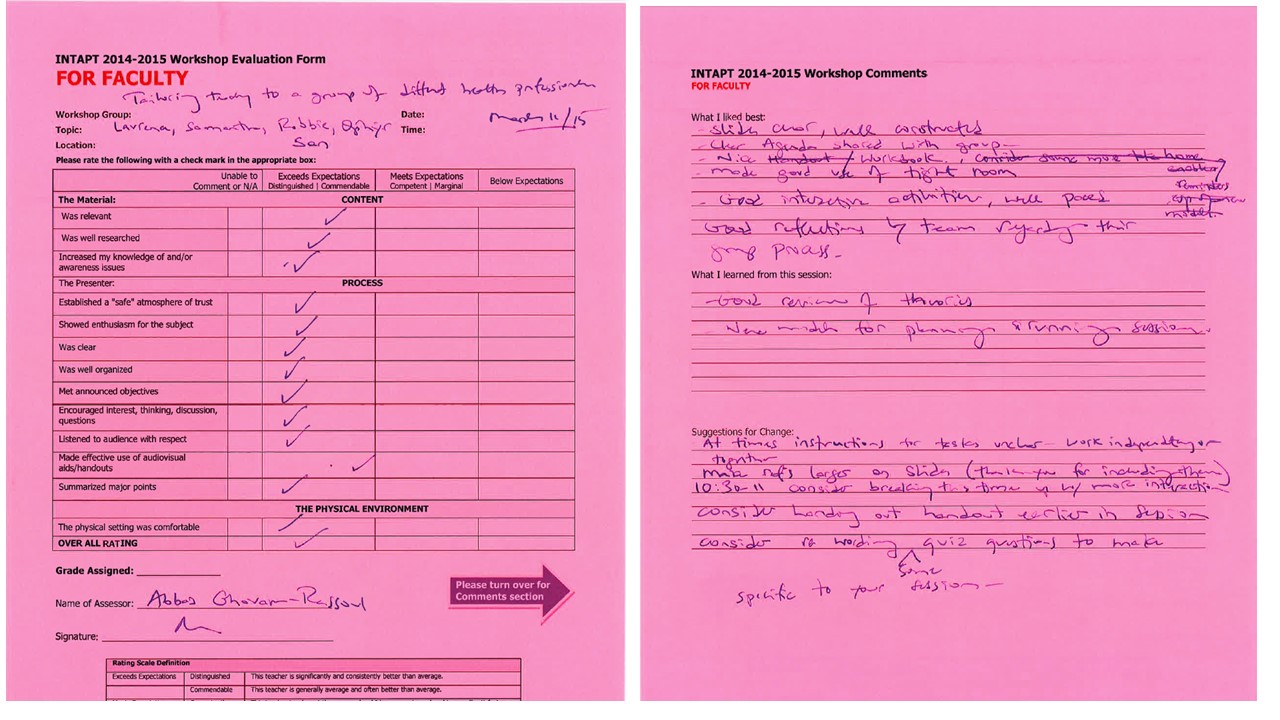 INTAPT 2014-2015 Workshop Evaluation Form
FOR FACULTY
Tailoring to a group of health professionals
Workshop Group:
Date: March 11/15
Topic: Laurena, Samantha, Robbie, Ophyr
Time:
San
Location:
Please rate the following with a check mark in the appropriate box:
Unable to Comment or N/A
Exceeds Expectations
Distinguished | Commendable
Meets Expectations
Competent | Marginal
Below Expectations
The Material: CONTENT
Was relevant ✓
Was well researched ✓
Increased my knowledge of and/or
awareness issues ✓
The Presenter: PROCESS
Established a "safe" atmosphere of trust ✓
Showed enthusiasm for the subject ✓
Was clear ✓
Was well organized ✓
Met announced objectives ✓
Encouraged interest, thinking, discussion,
questions ✓
Listened to audience with respect ✓
Made effective use of audiovisual
aids/handouts ✓
Summarized major points ✓
THE PHYSICAL ENVIRONMENT
The physical setting was comfortable ✓
OVER ALL RATING ✓
Grade Assigned:
Please turn over for
Comments section
Name of Assessor: Abbas Ghavam-Rassoul
Signature:
Rating Scale Definition
Exceeds Expectations Distinguished This teacher is significantly and consistently better than average.
Commendable This teacher is generally average and often better than average.
INTAPT 2014-2015 Workshop Comments
FOR FACULTY
What I liked best:
- Slides clear, well constructed
- Clear Agenda shared with group
- Nice Handout / Workbook, consider some more take home
reminders
- made good use of tight room
- Good interactive activities, well paced
Good reflections by team regarding their
group process -
What I learned from this session:
- Good review of theories
- New models for planning & running session.
Suggestions for Change:
At times instructions for tasks unclear - work independently or
together
make ref's larger on slides (thank you for including them)
10:30-11 consider breaking this time up w/ more interaction
consider handing out handout earlier in session
consider re wording some quiz questions to make
specific to your session -